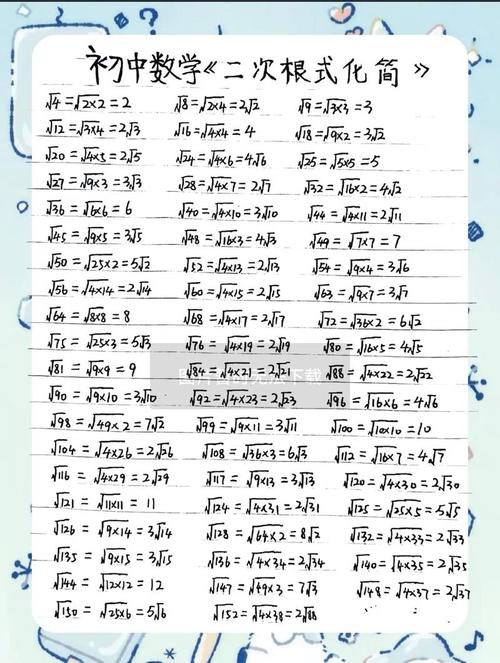 初中数学《二次根式化简》
√4=√2×2=2 √8=√2×4=2√2 √9=√3×3=3
√12=√3×4=2√3 √16=√4×4=4 √18=√9×2=3√2
√20=√4×5=2√5 √24=√4×6=4√6 √25=√5×5=5
√27=√9×3=3√3 √28=√4×7=2√7 √32=√16×2=4√2
√36=√6×6=6 √40=√4×10=3√10 √44=√4×11=2√11
√45=√9×5=3√5 √48=√16×3=4√3 √49=√7×7=7
√50=√25×2=5√2 √52=√4×13=2√13 √54=√9×4=3√6
√56=√4×14=2√14 √60=√4×15=2√15 √63=√9×7=3√7
√64=√8×8=8 √68=√4×17=2√17 √72=√36×2=6√2
√75=√25×3=5√3 √76=√4×19=2√19 √80=√16×5=4√5
√81=√9×9=9 √84=√4×21=2√21 √88=√4×22=2√22
√90=√9×10=3√10 √92=√4×23=2√23 √96=√16×6=4√6
√98=√49×2=7√2 √99=√9×11=3√11 √100=√10×10=10
√104=√4×26=2√26 √108=√36×3=6√3 √112=√16×7=4√7
√116=√4×29=2√29 √117=√9×13=3√13 √120=√4×30=2√30
√121=√11×11=11 √124=√4×31=2√31 √125=√25×5=5√5
√126=√9×14=3√14 √128=√64×2=8√2 √132=√4×33=2√33
√135=√9×15=3√15 √136=√4×34=2√34 √140=√4×35=2√35
√144=√12×12=12 √147=√49×3=7√3 √148=√4×37=2√37
√150=√25×6=5√6 √152=√4×38=2√38